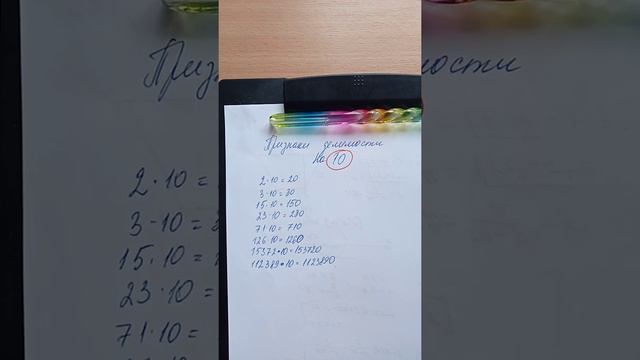 Признаки делимости
на 10
2·10=20
3·10=30
15·10=150
23·10=230
71·10=710
126·10=1260
15372•10=153720
112389•10=1123890